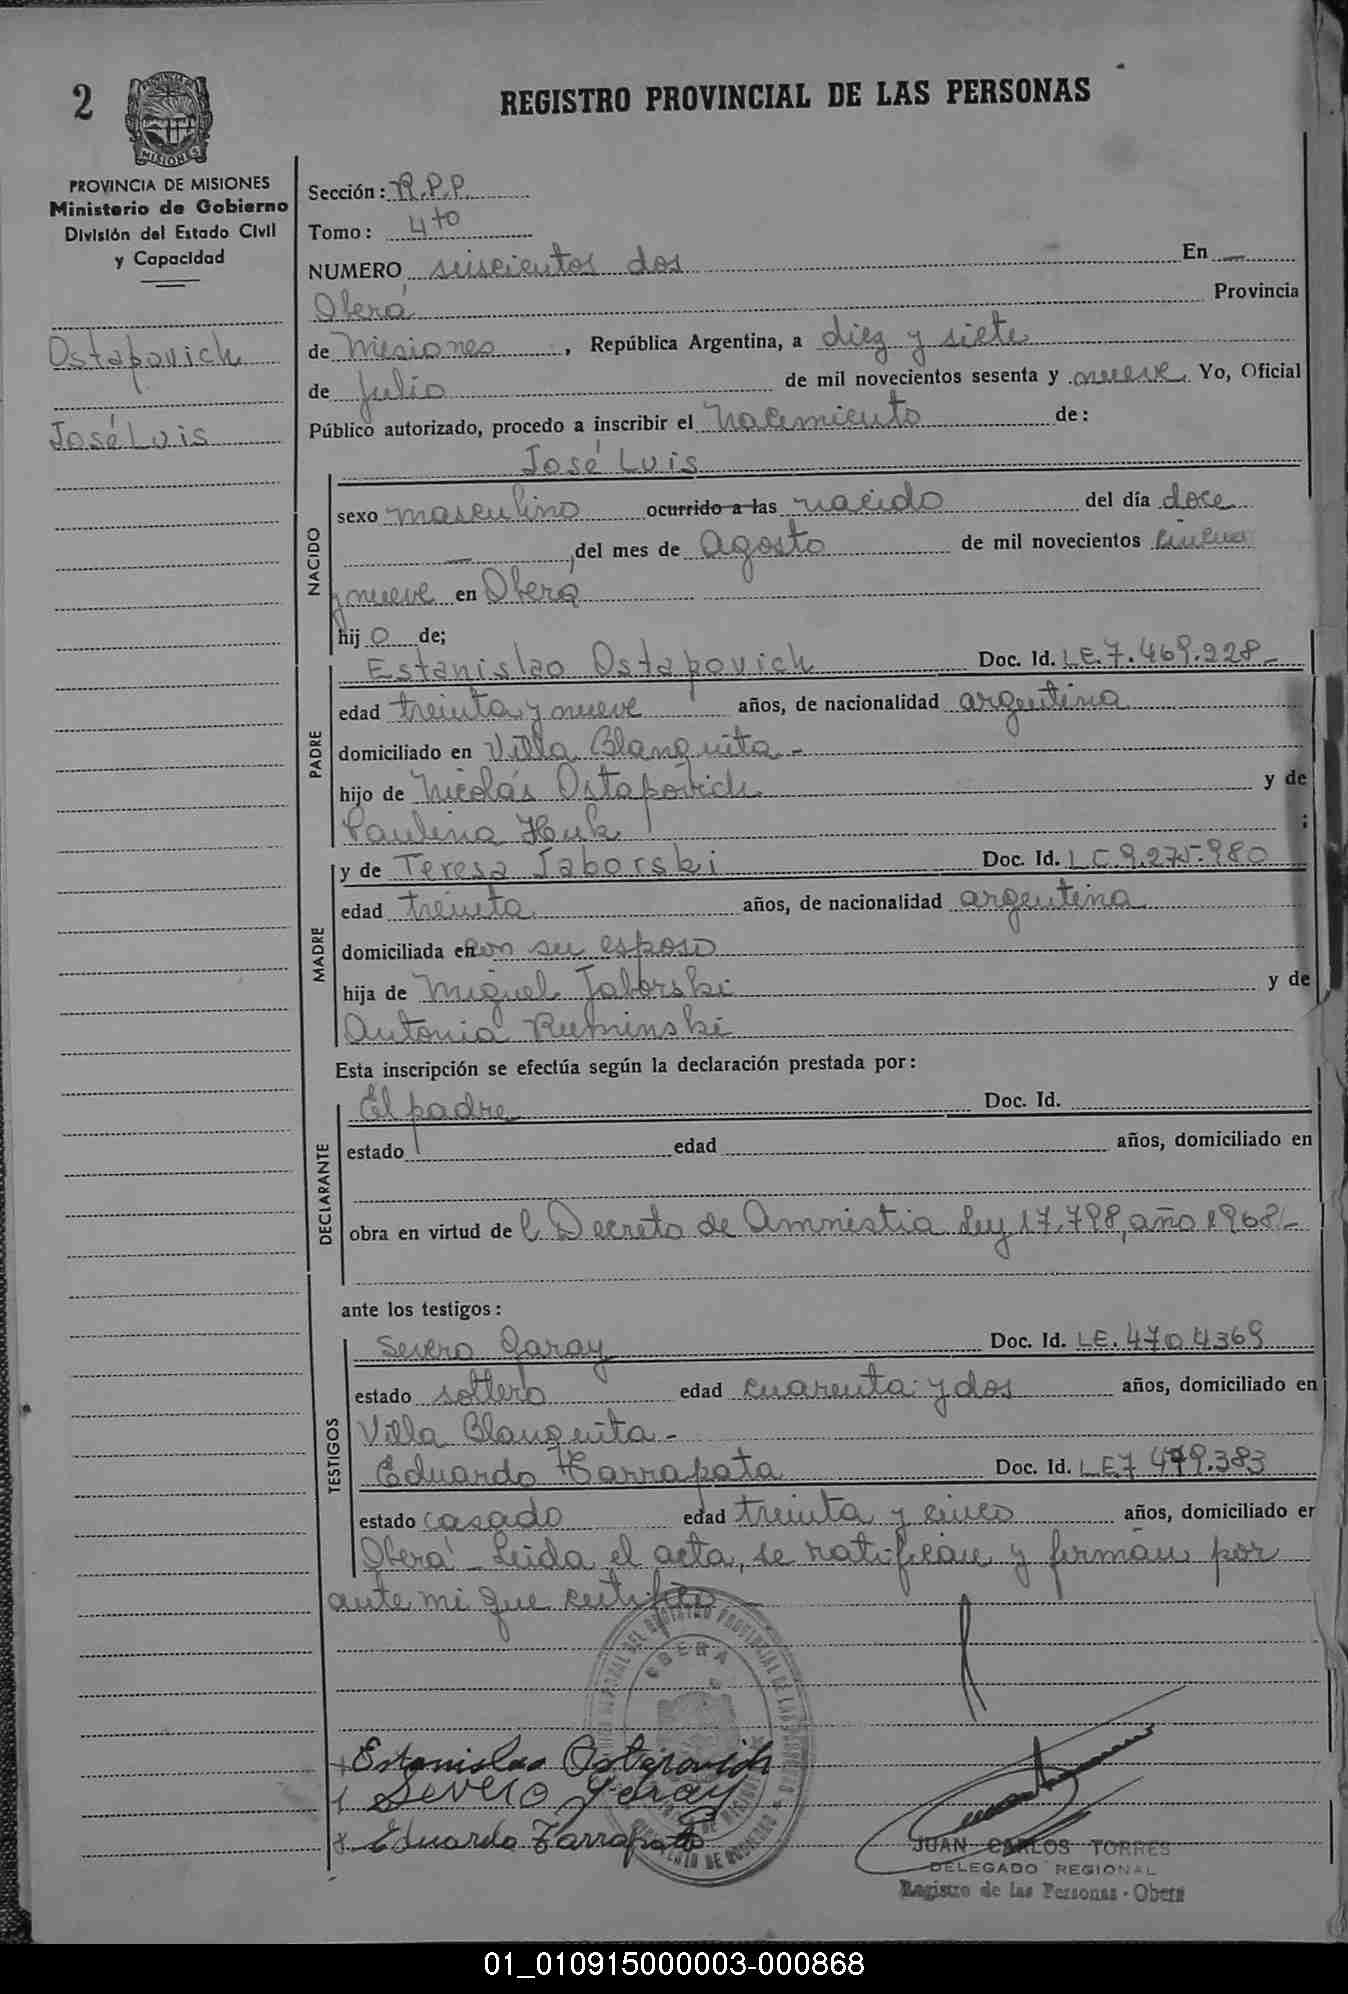 2
REGISTRO PROVINCIAL DE LAS PERSONAS
MISIONES
PROVINCIA DE MISIONES
Ministerio de Gobierno
División del Estado Civil
y Capacidad
Ostapovich
José Luis
Sección: R.P.P.
Tomo: 4to
NUMERO seiscientos dos En —
Oberá Provincia
de Misiones, República Argentina, a diez y siete
de Julio de mil novecientos sesenta y nueve. Yo, Oficial
Público autorizado, procedo a inscribir el Nacimiento de:
José Luis
NACIDO
sexo masculino ocurrido a las nacido del día doce
—, del mes de Agosto de mil novecientos
y nueve en Oberá
hij o de;
PADRE
Estanislao Ostapovich Doc. Id. LE. 7.469.228-
edad treinta y nueve años, de nacionalidad argentina
domiciliado en Villa Blanquita -
hijo de Nicolás Ostapovich y de
Paulina Huk ;
MADRE
y de Teresa Jaborski Doc. Id. LC 9.275.980
edad treinta años, de nacionalidad argentina
domiciliada en con su esposo
hija de Miguel Jaborski y de
Antonia Ruminski
Esta inscripción se efectúa según la declaración prestada por:
DECLARANTE
El padre Doc. Id.
estado edad años, domiciliado en
obra en virtud de l Decreto de Amnistia Ley 17.798, año 1968/-
ante los testigos:
TESTIGOS
Severo Garay Doc. Id. LE. 4704369
estado soltero edad cuarenta y dos años, domiciliado en
Villa Blanquita -
Eduardo Harrapata Doc. Id. LE7 479.383
estado casado edad treinta y cinco años, domiciliado en
Oberá - Leida el acta, se ratifican y firman por
ante mi que certifico -
OBERA
Estanislao Ostapovich
Severo Garay
Eduardo Harrapata
JUAN CARLOS TORRES
DELEGADO REGIONAL
Registro de las Personas - Oberá
01_010915000003-000868